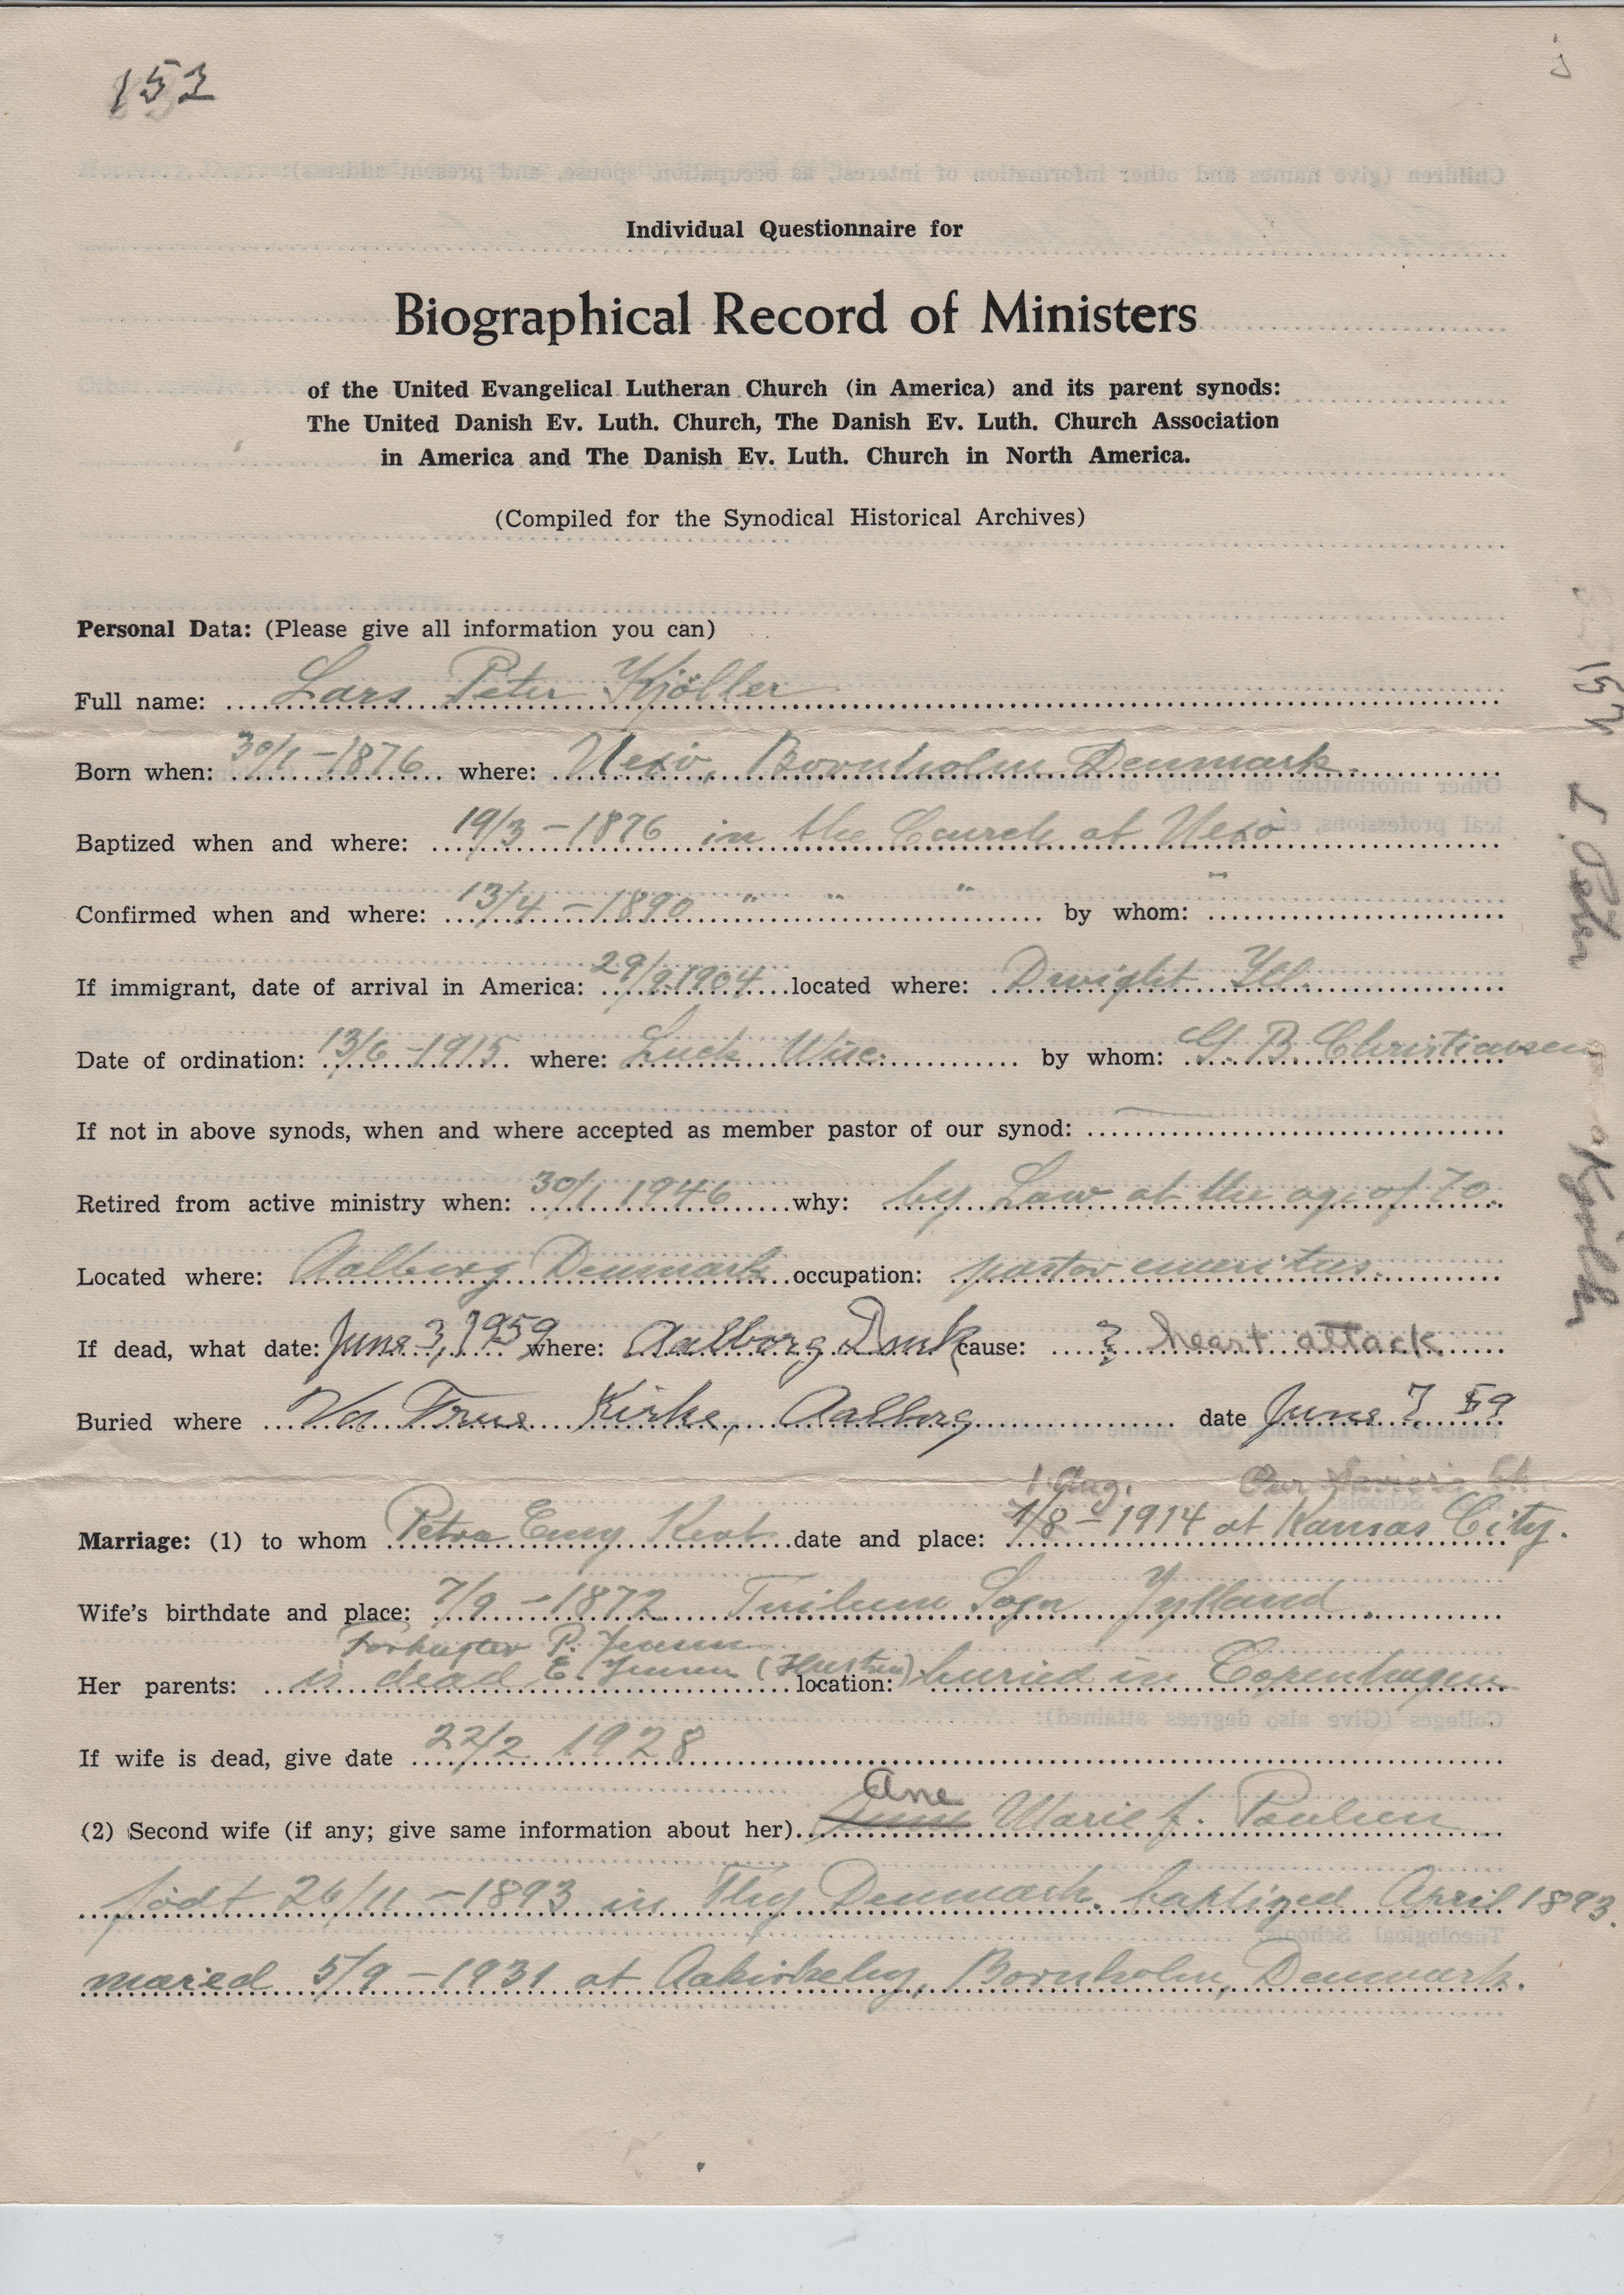 153
Individual Questionnaire for
Biographical Record of Ministers
of the United Evangelical Lutheran Church (in America) and its parent synods:
The United Danish Ev. Luth. Church, The Danish Ev. Luth. Church Association
in America and The Danish Ev. Luth. Church in North America.
(Compiled for the Synodical Historical Archives)
Personal Data: (Please give all information you can)
Full name: Lars Peter Kjöller
Born when: 30/1-1876 where: Nexö, Bornholm Denmark.
Baptized when and where: 19/3-1876 in the Church at Nexö
Confirmed when and where: 13/4-1890 " " " " by whom:
If immigrant, date of arrival in America: 29/9 1904 located where: Dwight Ill.
Date of ordination: 13/6-1915 where: Luck Wisc. by whom: G. B. Christiansen
If not in above synods, when and where accepted as member pastor of our synod: —
Retired from active ministry when: 30/1 1946 why: by Law at the age of 70.
Located where: Aalborg Denmark occupation: pastor emeritus.
If dead, what date: June 3, 1959 where: Aalborg Dmk cause: ? heart attack
Buried where Vor Frue Kirke, Aalborg date June 7, 59
1 Aug. Our Savior's Ch.
Marriage: (1) to whom Petra Emy Kent date and place: 1/8-1914 at Kansas City.
Wife's birthdate and place: 7/9-1872 Sogn Jylland
P. Jensen
Her parents: is dead E. Jensen (Hustru) location: buried in Copenhagen
If wife is dead, give date 22/2 1928
Ane
(2) Second wife (if any; give same information about her) Marie f. Poulsen
födt 26/11-1893 in Thy Denmark. baptized April 1893.
maried 5/9-1931 at Aakirkeby, Bornholm, Denmark.